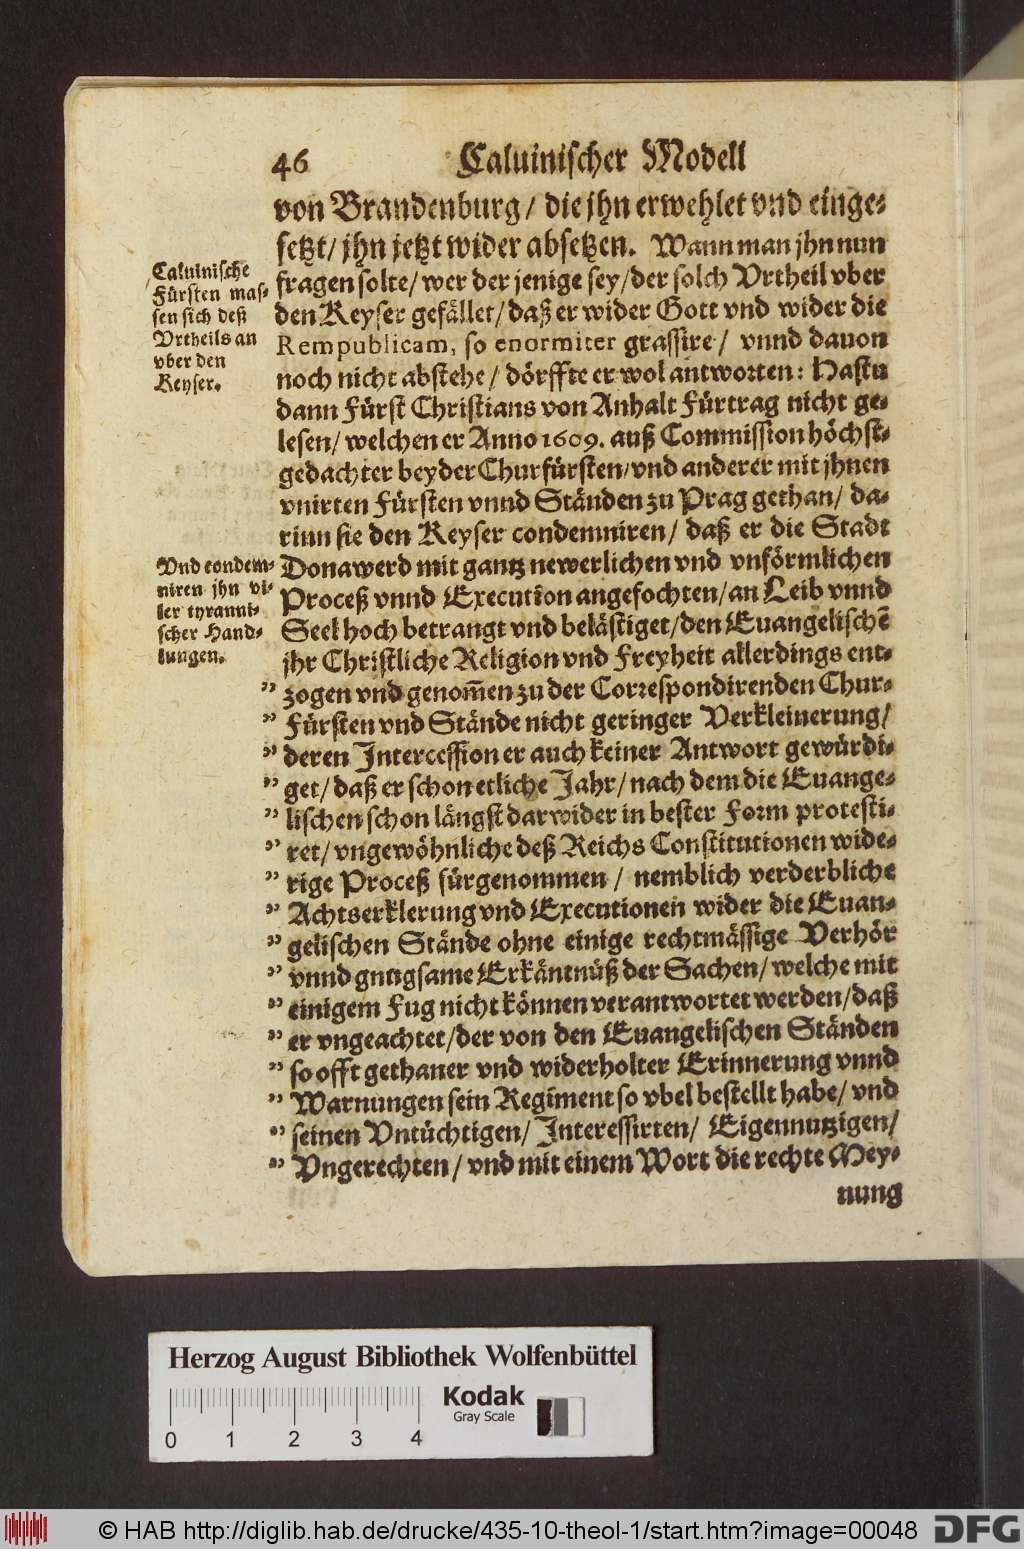 46 Caluinischer Modell
von Brandenburg/ die jhn erwehlet vnd einge-
setzt/ jhn jetzt wider absetzen. Wann man jhn nun
fragen solte/ wer der jenige sey/ der solch Vrtheil vber
den Keyser gefället/ daß er wider Gott vnd wider die
Rempublicam, so enormiter grassire/ vnnd dauon
noch nicht abstehe/ dörffte er wol antworten: Hastu
dann Fürst Christians von Anhalt Fürtrag nicht ge-
lesen/ welchen er Anno 1609. auß Commission höchst-
gedachter beyder Churfürsten/ vnd anderer mit jhnen
vnirten Fürsten vnnd Ständen zu Prag gethan/ da-
rinn sie den Keyser condemniren/ daß er die Stadt
Donawerd mit gantz newerlichen vnd vnförmlichen
Proceß vnnd Execution angefochten/ an Leib vnnd
Seel hoch betrangt vnd belästiget/ den Euangelischē
jhr Christliche Religion vnd Freyheit allerdings ent-
" zogen vnd genom̄en zu der Correspondirenden Chur-
" Fürsten vnd Stände nicht geringer Verkleinerung/
" deren Intercession er auch keiner Antwort gewürdi-
" get/ daß er schon etliche Jahr/ nach dem die Euange-
" lischen schon längst darwider in bester Form protesti-
" ret/ vngewöhnliche deß Reichs Constitutionen wide-
" rige Proceß fürgenommen/ nemblich verderbliche
" Achtserklerung vnd Executionen wider die Euan-
" gelischen Stände ohne einige rechtmässige Verhör
" vnnd gnugsame Erkäntnüß der Sachen/ welche mit
" einigem Fug nicht können verantwortet werden/ daß
" er vngeachtet/ der von den Euangelischen Ständen
" so offt gethaner vnd widerholter Erinnerung vnnd
" Warnungen sein Regiment so vbel bestellt habe/ vnd
" seinen Vntüchtigen/ Interessirten/ Eigennutzigen/
" Vngerechten/ vnd mit einem Wort die rechte Mey-
nung
Caluinische
Fürsten mas-
sen sich deß
Vrtheils an
vber den
Keyser.
Vnd condem-
niren jhn vi-
ler tyranni-
scher Hand-
lungen.
Herzog August Bibliothek Wolfenbüttel
Kodak
Gray Scale
0 1 2 3 4
© HAB http://diglib.hab.de/drucke/435-10-theol-1/start.htm?image=00048
DFG